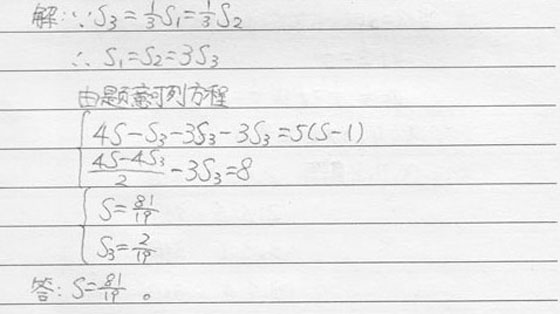 解:∵S₃=⅓S₁=⅓S₂
∴S₁=S₂=3S₃
由题意可列方程
4S-S₃-3S₃-3S₃=5(S-1)
(4S-4S₃)/2-3S₃=8
S=81/19
S₃=2/19
答:S=81/19。